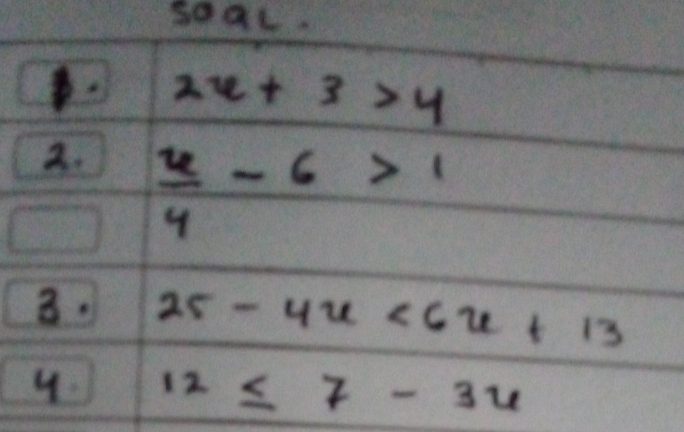 SOAL.
1. 2x + 3 > 4
2. x/4 - 6 > 1
3. 25 - 4x < 6x + 13
4. 12 ≤ 7 - 3x